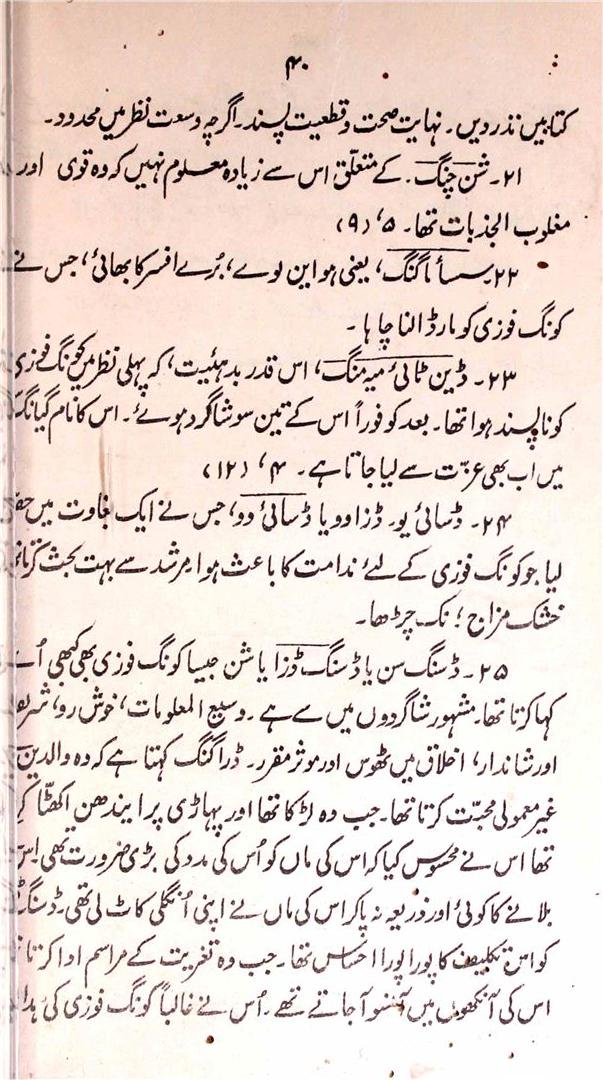 ۴۰
کتابیں نذر دیں۔ نہایت صحت و قطعیت پسند۔ اگرچہ وسعت نظر میں محدود۔
۲۱۔ شن چنگ۔ کے متعلق اس سے زیادہ معلوم نہیں کہ وہ قوی اور
مغلوب الجذبات تھا۔ ۵، (۹)
۲۲۔ سسأ ماگنگ، یعنی ہو این لوے، بُرے افسر کا بھائی، جس نے
کونگ فوزی کو مار ڈالنا چاہا۔
۲۳۔ ڈین ٹائی میہ منگ، اس قدر بد ہئیت، کہ پہلی نظر میں کونگ فوزی
کو ناپسند ہوا تھا۔ بعد کو فوراً اس کے تین سو شاگرد ہوۓ۔ اس کا نام گیانگ
میں اب بھی عزّت سے لیا جاتا ہے۔ ۴، (۱۲)
۲۴۔ ڈسائی یو۔ ڈزاوو یا ڈسائی دو، جس نے ایک بغاوت میں
لیا جو کونگ فوزی کے لئے ندامت کا باعث ہوا۔ مرشد سے بہت بحث کرتا
خشک مزاج؛ نک چڑھا۔
۲۵۔ ڈسنگ سن یا ڈسنگ ڈزا یا شن جیسا کونگ فوزی بھی کبھی
کہا کرتا تھا۔ مشہور شاگردوں میں سے ہے۔ وسیع المعلومات، خوش رو،
اور شاندار، اخلاق میں ٹھوس اور موثر مقرر۔ ڈراگنگ کہتا ہے کہ وہ والدین
غیر معمولی محبّت کرتا تھا۔ جب وہ لڑکا تھا اور پہاڑی پر ایندھن اکھٹا
تھا اس نے محسوس کیا کہ اس کی ماں کو اُس کی مدد کی بڑی ضرورت تھی اس
بلانے کا کوئی اور ذریعہ نہ پا کر اس کی ماں نے اپنی اُنگلی کاٹ لی تھی۔ ڈسنگ
کو اس تکلیف کا پورا پورا احساس تھا۔ جب وہ تغریت کے مراسم ادا کرتا
اس کی آنکھوں میں آنسو آجاتے تھے۔ اُس نے غالباً کونگ فوزی کی